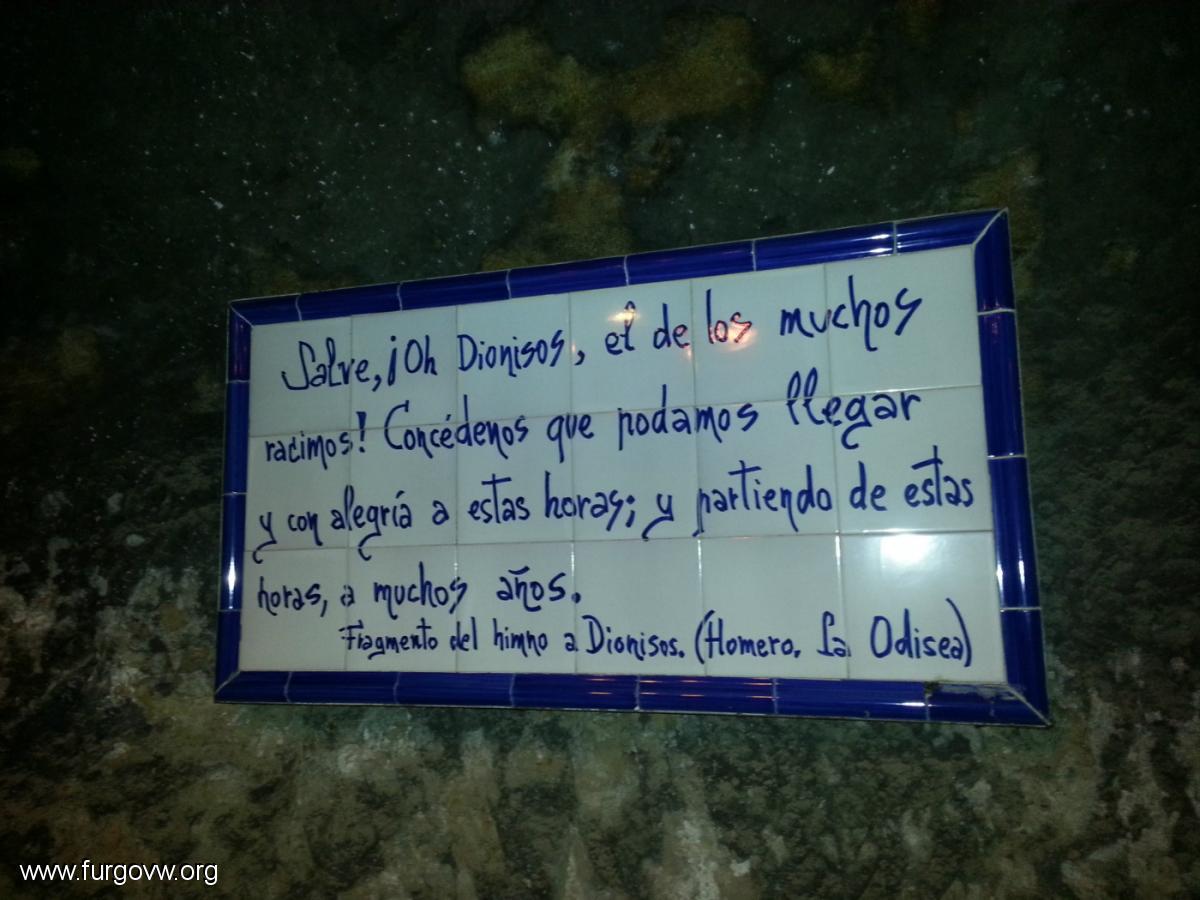 Salve, ¡Oh Dionisos, el de los muchos
racimos! Concédenos que podamos llegar
y con alegría a estas horas; y partiendo de estas
horas, a muchos años.
Fragmento del himno a Dionisos. (Homero. La Odisea)
www.furgovw.org